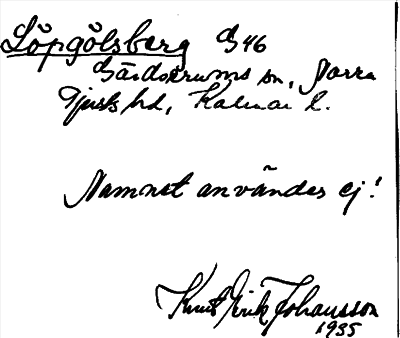 Löpgölsberg G46
Gärdserums sn, Norra
Tjusts hd, Kalmar l.
Namnet användes ej!
Knut Erik Johansson
1935